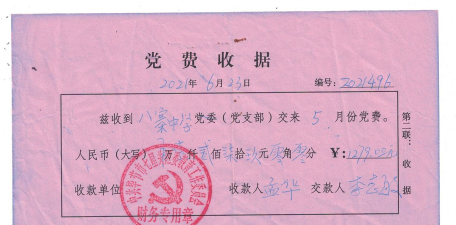 党费收据
2021年6月23日 编号：2021496
兹收到 八寨中学 党委（党支部）交来 5 月份党费。
人民币（大写） 万 仟贰佰柒拾 元零角零分 ￥：1279.00
收款单位 收款人 孟华 交款人 李
第二联：收据
财务专用章